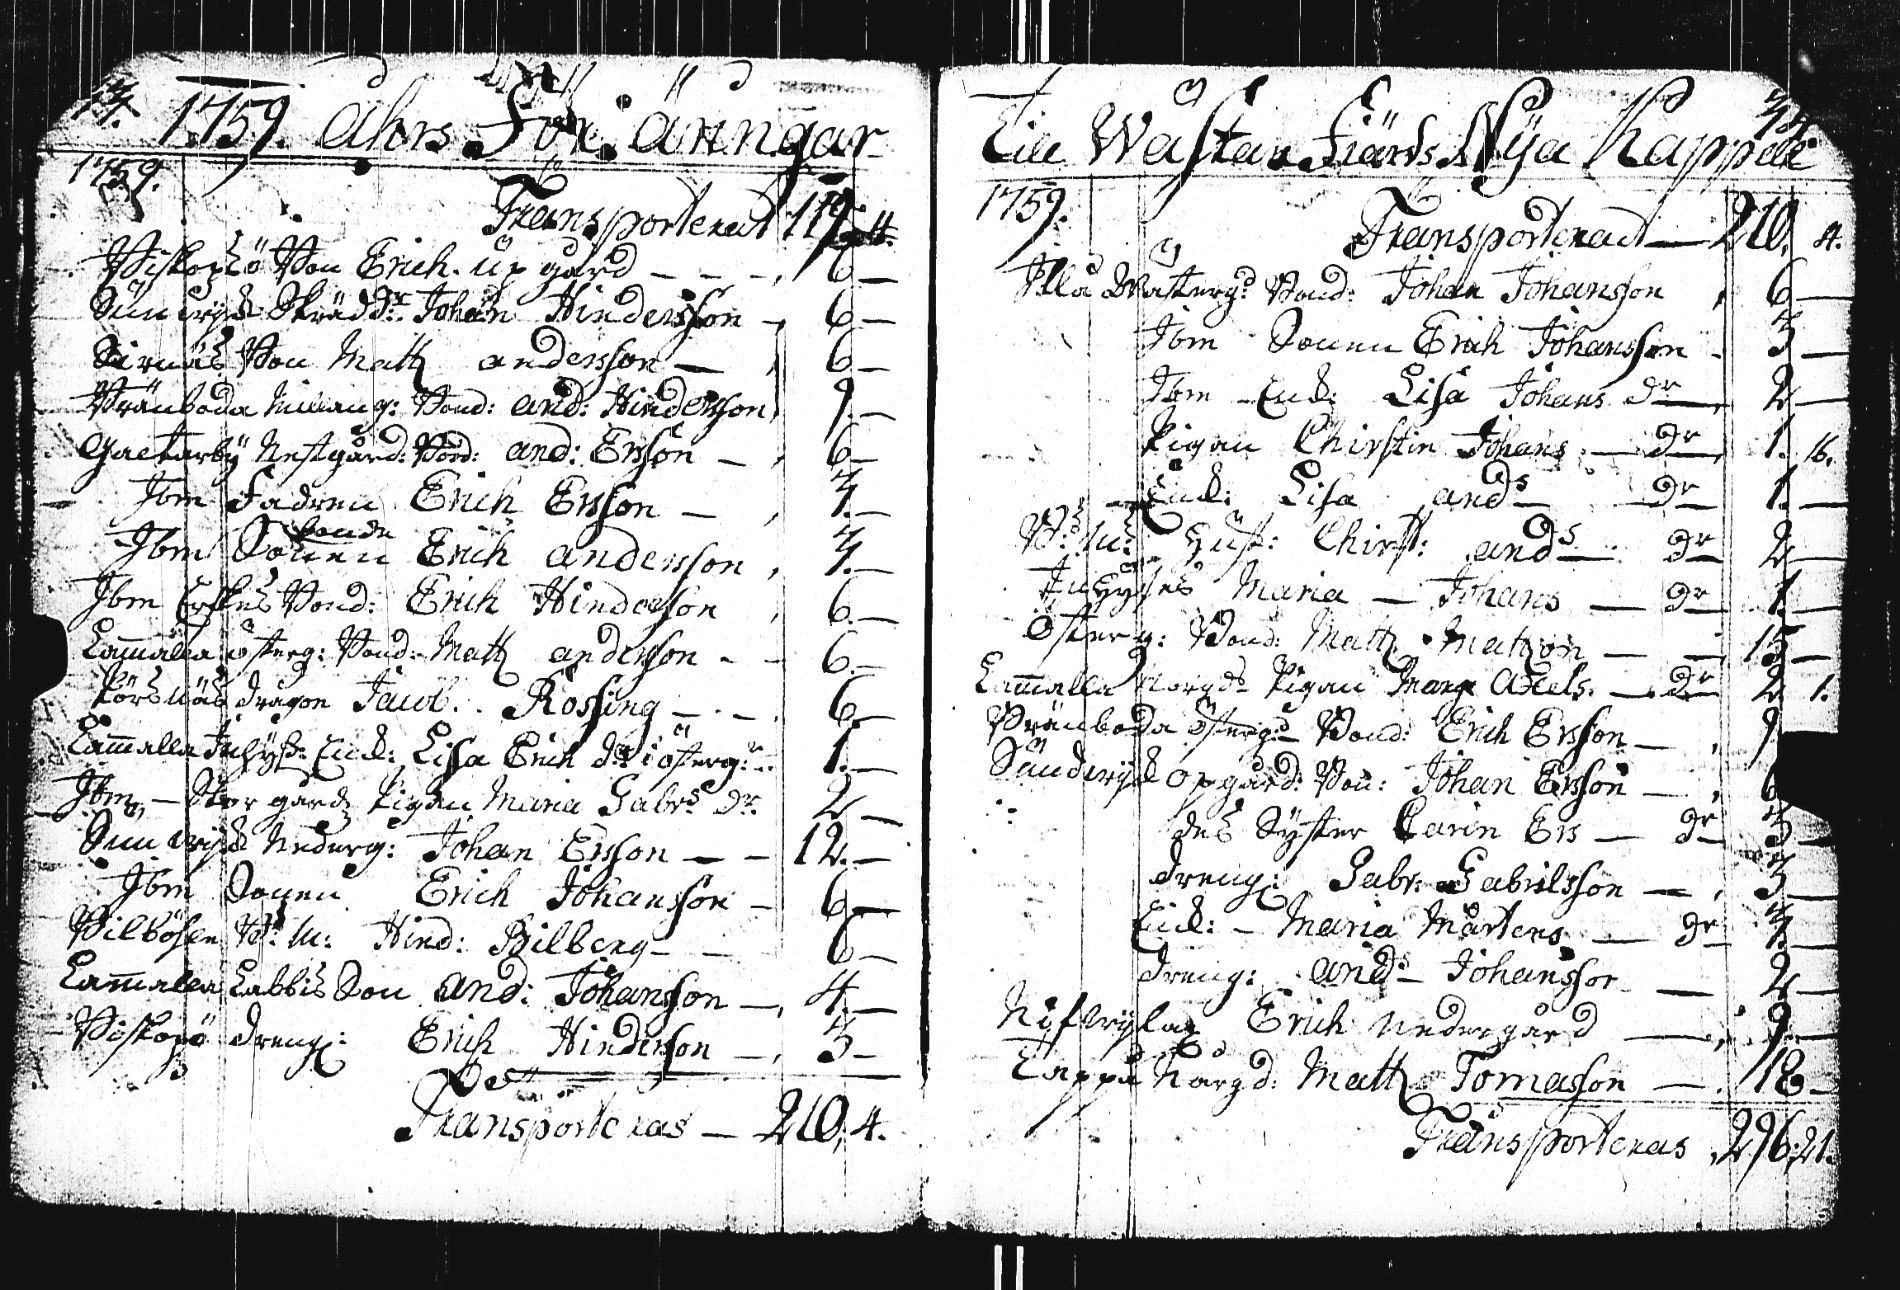 1759. åhrs För. äringar
1759.
Transporterad 119. 4.
Biskopsö Bon Erich. upgård — 6 —
Sundwijk Skrädd:r Johan Hindersson — 6 —
Sirnäs Bon Math andersson — 6 —
Bränboda Bond: And: Hindersson, 9. —
Galtarby Nestgård: Bond: And: Ersson — 6 —
Ibm Fadren Erich Ersson — 3. —
bonde
Ibm Sonen Erich andersson, 3. —
Ibm Bond: Erich Hindersson, 6. —
Lammala österg: Bond: Math andersson - 6. —
Pörsnäs dragon Jacob. Rossing — 6. —
Lammala Inhys: Enk: Lisa Erich d:r i österg: 1. —
Ibm — Stor gårdz pigan Maria Gabr:s dr. 2 —
Sundwijk Nederg: Johan Ersson — 12. —
Ibm Sonen Erich Johansson — 6 —
Bilbölen B: M: Hind: Bilberg — 6 —
Lammala Labbis Son And: Johansson —, 4 —
Biskopsö dreng: Erich Hindersson —, 3 —
Transporteras — 210, 4.
Till Wästan Fiärds Nya Kappell
1759.
Transporterad — 210. 4.
Illå Wästerg:d Bond: Johan Johansson, 6 —
Ibm Sonen Erich Johansson - 3 —
Ibm Enk: Lisa Johans dr —, 2 —
Pigan Chirstin Johans — dr —, 1. 16.
Enk: Lisa and:s — dr — 1. —
B: M: Hust: Chirst: and:s — dr — 2 —
Inhyses Maria — Johans — dr — 1. —
Österg: Bond: Math. Matsson — 15 —
Lammala Norgd: Pigan Marg Axels. — dr — 2 1.
Bränboda Österg:d Bond: Erich Ersson —, 9
Sundwijk Opgård: Bon: Johan Ersson —, 6
des Syster Carin Ers — dr — 3 —
dreng: Gabr: Gabrilsson —, 3 —
Enk: - Maria Mårtens — dr — 3. —
dreng: and:s — Johansson — 2 —
Erich nedergård —, 9. —
Lappdal Norgd: Math Tomasson —, 18 —
Transporteras 296:21.